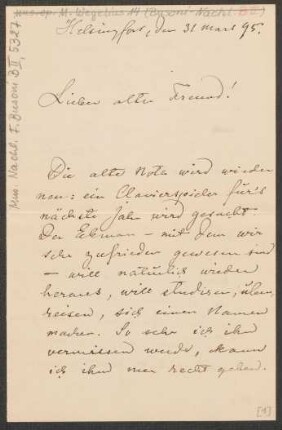 Mus. ep. M. Wegelius 14 (Busoni-Nachl. B II)
Mus. Nachl. F. Busoni B II, 5327
Helsingfors, den 31 mars 95.
Lieber alter Freund!
Die alte Nota wird wieder
neu: ein Clavierspieler für's
nächste Jahr wird gesucht.
Der Ekman – mit dem wir
sehr zufrieden gewesen sind
– will natürlich wieder
heraus, will studieren,
reisen, sich einen Namen
machen. So sehr ich ihn
vermissen werde, kann
ich ihm nur recht geben.
[1]